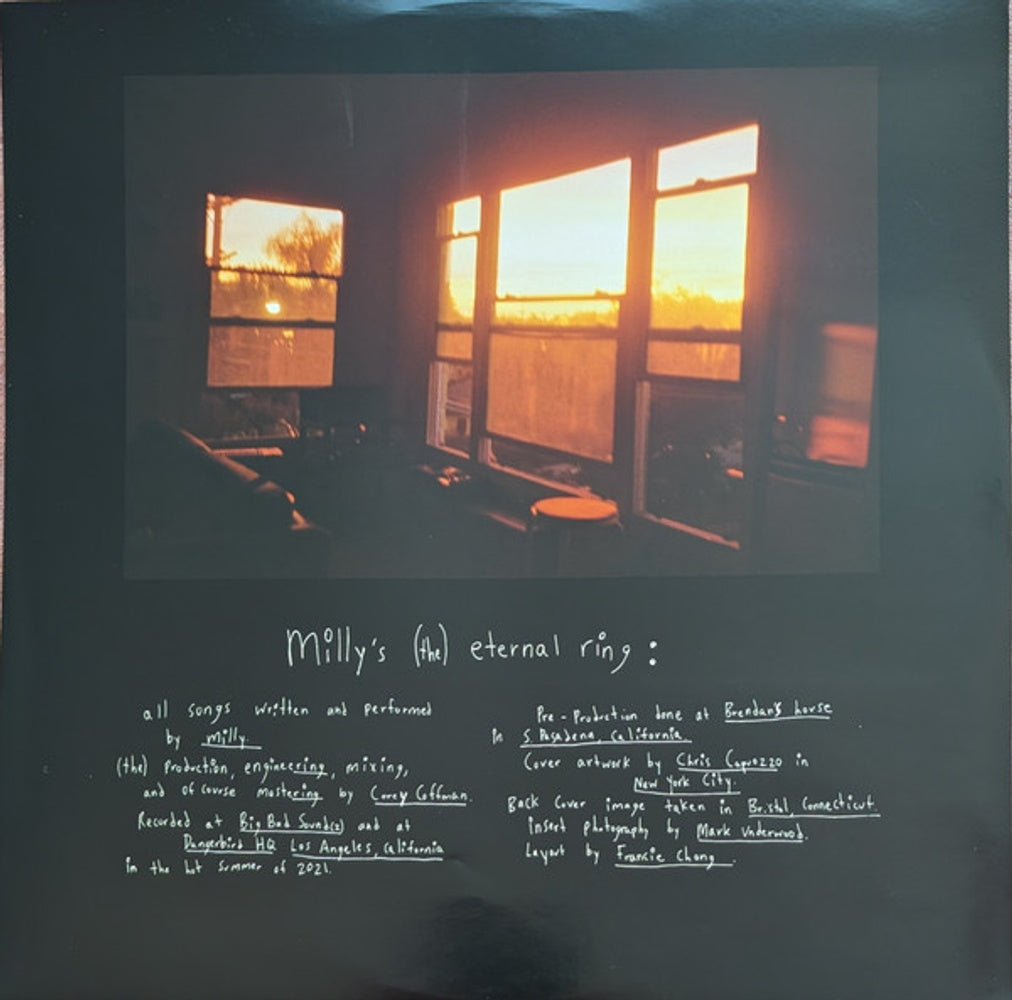 Milly's (the) eternal ring:
all songs written and performed
by Milly.
(the) Production, engineering, mixing,
and of course mastering by Corey Coffman.
Recorded at Big Bad Sound(s) and at
Dangerbird HQ Los Angeles, California
in the hot summer of 2021.
Pre-Production done at Brendan's house
in S. Pasadena, California.
Cover artwork by Chris Capuozzo in
New York City.
Back cover image taken in Bristol, Connecticut.
insert photography by Mark Underwood.
Layout by Francie Chang.